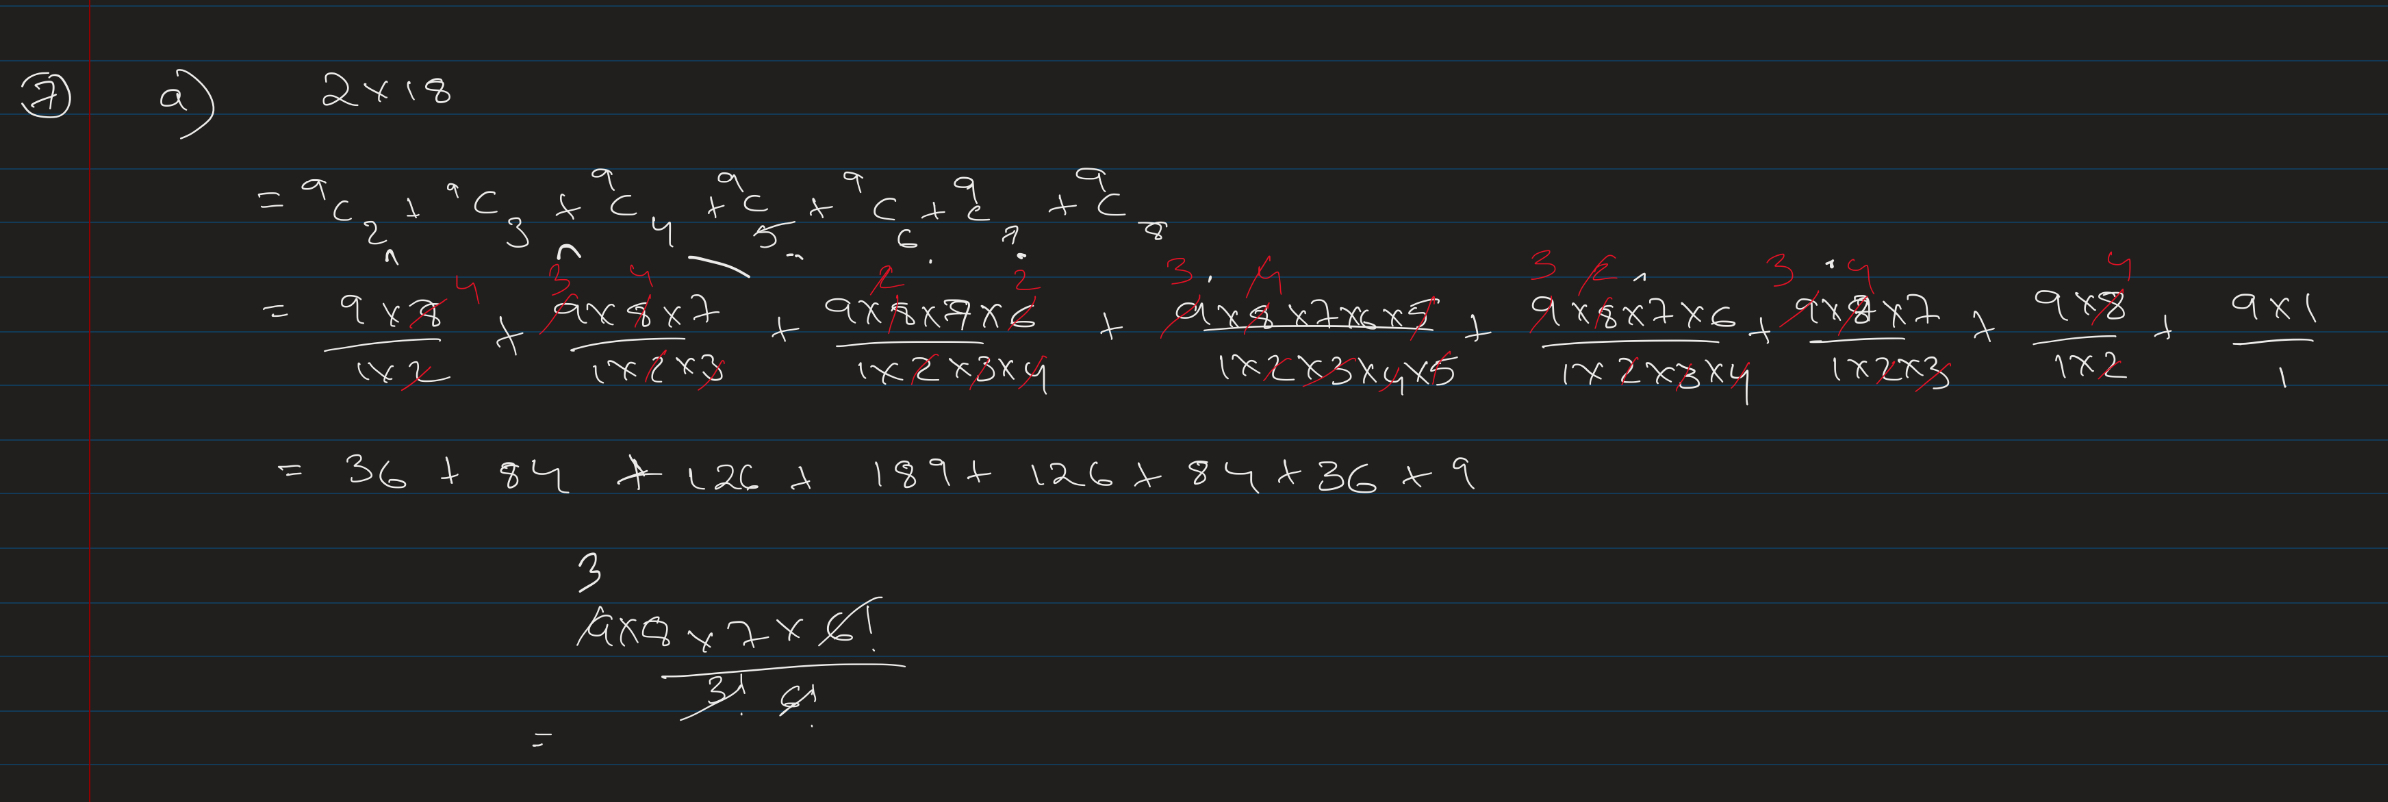 ⑦ a) 2 × 18
= ⁹C₂ + ⁹C₃ + ⁹C₄ + ⁹C₅ + ⁹C₆ + ⁹C₇ + ⁹C₈
4 3 4 2 2 3 4 3 2 3 4 4
= 9×8/1×2 + 9×8×7/1×2×3 + 9×8×7×6/1×2×3×4 + 9×8×7×6×5/1×2×3×4×5 + 9×8×7×6/1×2×3×4 + 9×8×7/1×2×3 + 9×8/1×2 + 9×1/1
= 36 + 84 + 126 + 189 + 126 + 84 + 36 + 9
3
9×8×7×6!
3! 6!
=